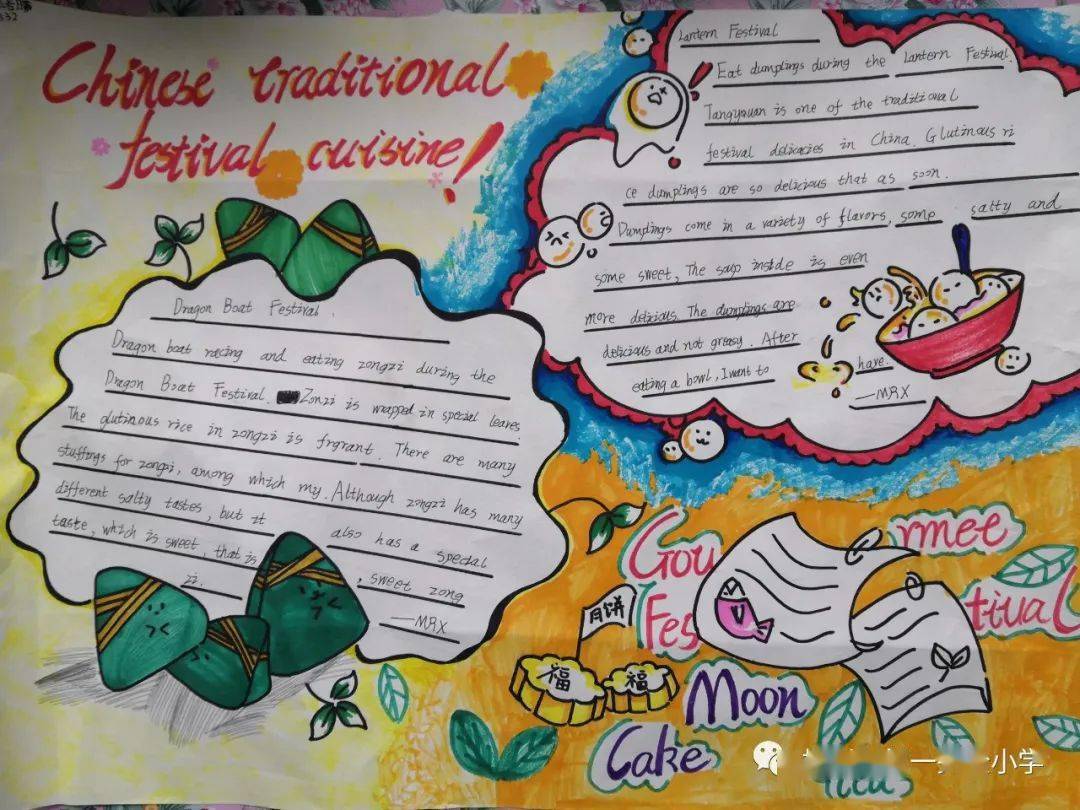 Chinese traditional
festival cuisine!
Dragon Boat Festival.
Dragon boat racing and eating zongzi during the
Dragon Boat Festival. Zonzi is wrapped in special leaves.
The glutinous rice in zongzi is frgrant. There are many
stuffings for zongzi, among which my. Although zongzi has many
different salty tastes, but it also has a special
taste, which is sweet, that is, sweet zong
zi.
—MRX
Lantern Festival
Eat dumplings during the Lantern Festival.
Tangyuan is one of the traditional
festival delicacies in China. Glutinous ri
ce dumplings are so delicious that as soon.
Dumplings come in a variety of flavors, some salty and
some sweet, The soup inside is even
more delicious. The dumplings are
delicious and not greasy. After
eating a bowl, I want to have.
—MRX
Gou rmee
Fes tival
月饼
福 福
Moon
Cake
一 小学